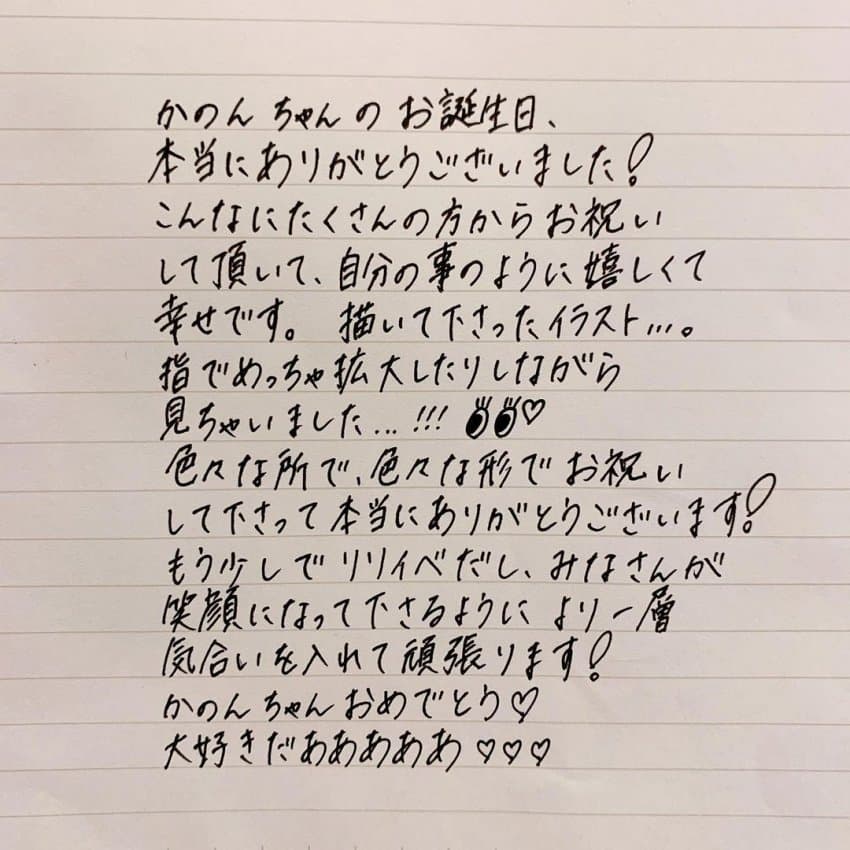 かのんちゃんのお誕生日、
本当にありがとうございました!
こんなにたくさんの方からお祝い
して頂いて、自分の事のように嬉しくて
幸せです。 描いて下さったイラスト…。
指でめっちゃ拡大したりしながら
見ちゃいました…!!! 👀♡
色々な所で、色々な形でお祝い
して下さって本当にありがとうございます!
もう少しでリリイベだし、みなさんが
笑顔になって下さるように より一層
気合いを入れて頑張ります!
かのんちゃんおめでとう♡
大好きだああああああ♡♡♡